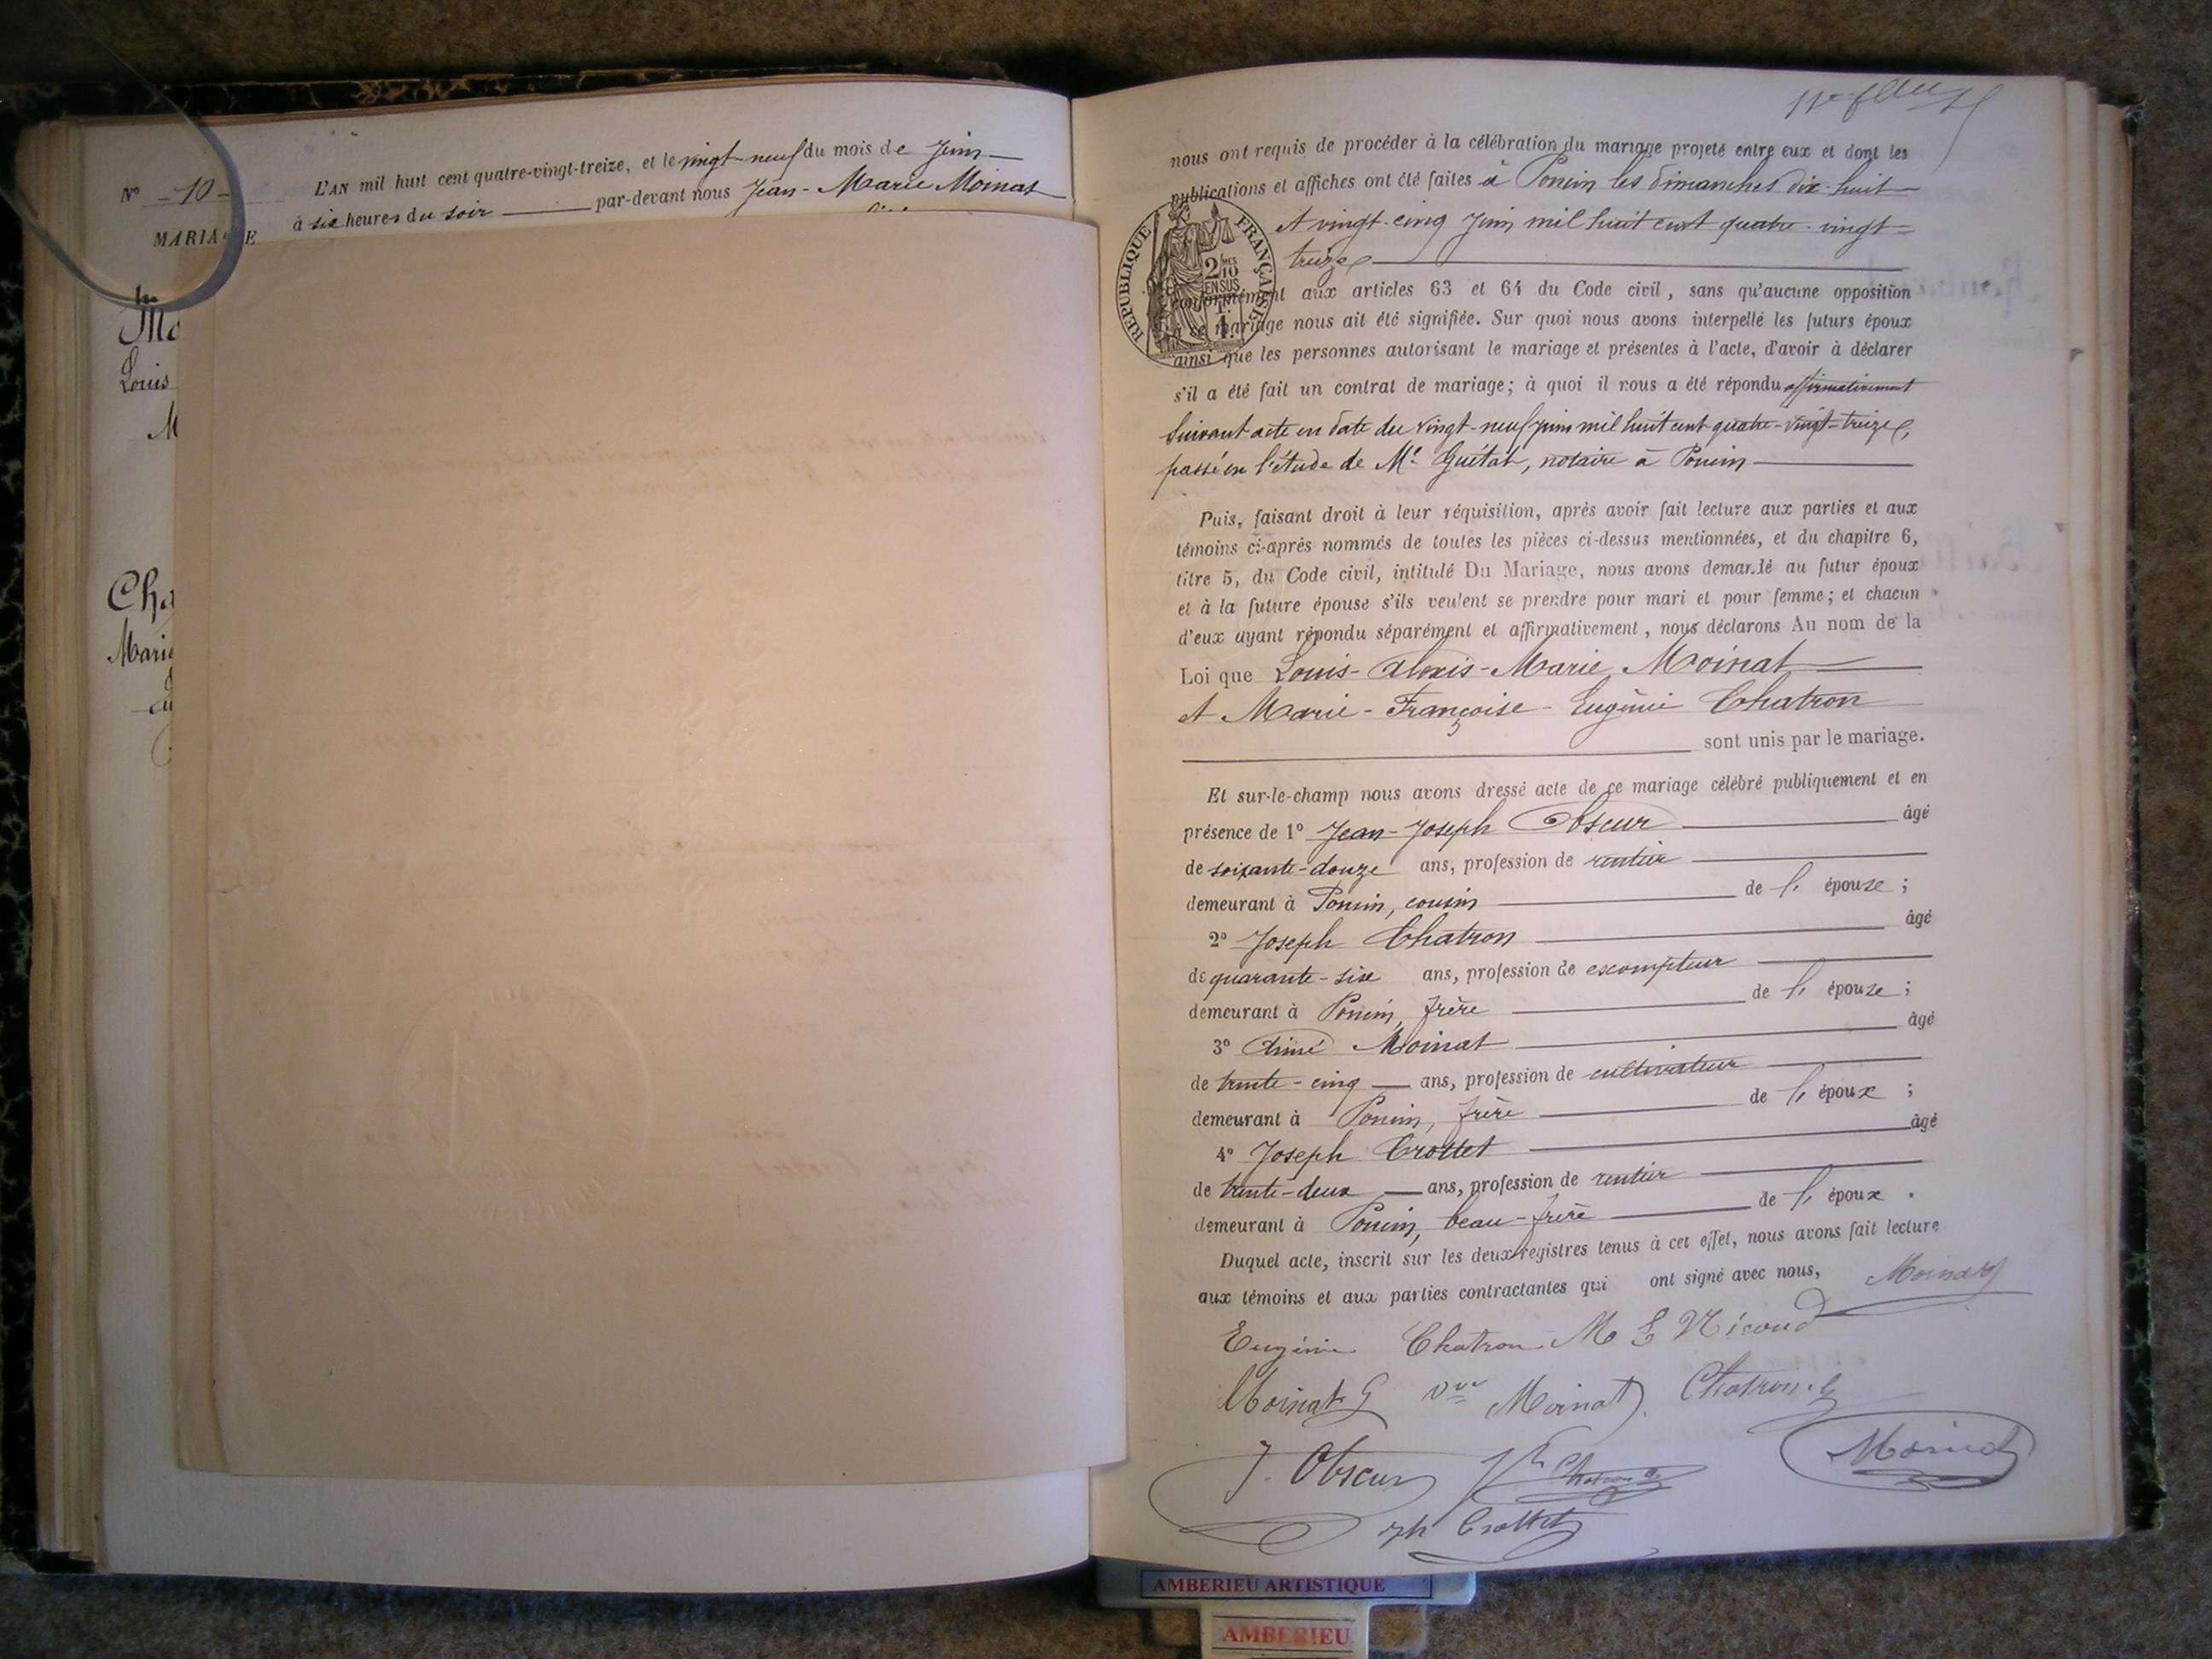 N° -10-
MARIAGE
L'AN mil huit cent quatre-vingt-treize, et le vingt-neuf du mois de Juin
à six heures du soir par-devant nous Jean-Marie Moinat
Louis
Cha
Marie
nous ont requis de procéder à la célébration du mariage projeté entre eux et dont les
publications et affiches ont été faites à Poncin les dimanches dix-huit
et vingt-cinq Juin mil huit cent quatre-vingt-
treize
REPUBLIQUE FRANÇAISE
2/10 MES
EN SUS
conformément aux articles 63 et 64 du Code civil, sans qu'aucune opposition
à ce mariage nous ait été signifiée. Sur quoi nous avons interpellé les futurs époux
ainsi que les personnes autorisant le mariage et présentes à l'acte, d'avoir à déclarer
s'il a été fait un contrat de mariage; à quoi il nous a été répondu affirmativement
suivant acte en date du vingt-neuf juin mil huit cent quatre-vingt-treize,
passé en l'étude de Me Guétat, notaire à Poncin
Puis, faisant droit à leur réquisition, après avoir fait lecture aux parties et aux
témoins ci-après nommés de toutes les pièces ci-dessus mentionnées, et du chapitre 6,
titre 5, du Code civil, intitulé Du Mariage, nous avons demandé au futur époux
et à la future épouse s'ils veulent se prendre pour mari et pour femme; et chacun
d'eux ayant répondu séparément et affirmativement, nous déclarons Au nom de la
Loi que Louis-Alexis-Marie Moinat
et Marie-Françoise-Eugénie Chatron
sont unis par le mariage.
Et sur-le-champ nous avons dressé acte de ce mariage célébré publiquement et en
présence de 1° Jean-Joseph Obscur âgé
de soixante-douze ans, profession de rentier
demeurant à Poncin, cousin de l' épouse;
2° Joseph Chatron âgé
de quarante-six ans, profession de escompteur
demeurant à Poncin, frère de l' épouse;
3° Aimé Moinat âgé
de trente-cinq ans, profession de cultivateur
demeurant à Poncin, frère de l' époux;
4° Joseph Crottet âgé
de trente-deux ans, profession de rentier
demeurant à Poncin, beau-frère de l' époux.
Duquel acte, inscrit sur les deux registres tenus à cet effet, nous avons fait lecture
aux témoins et aux parties contractantes qui ont signé avec nous, Moinat
Eugénie Chatron M L Nicoud
Moinat G Vve Moinat Chatron
J. Obscur Jh Chatron Moinat
Jh Crottet
AMBERIEU ARTISTIQUE
AMBERIEU